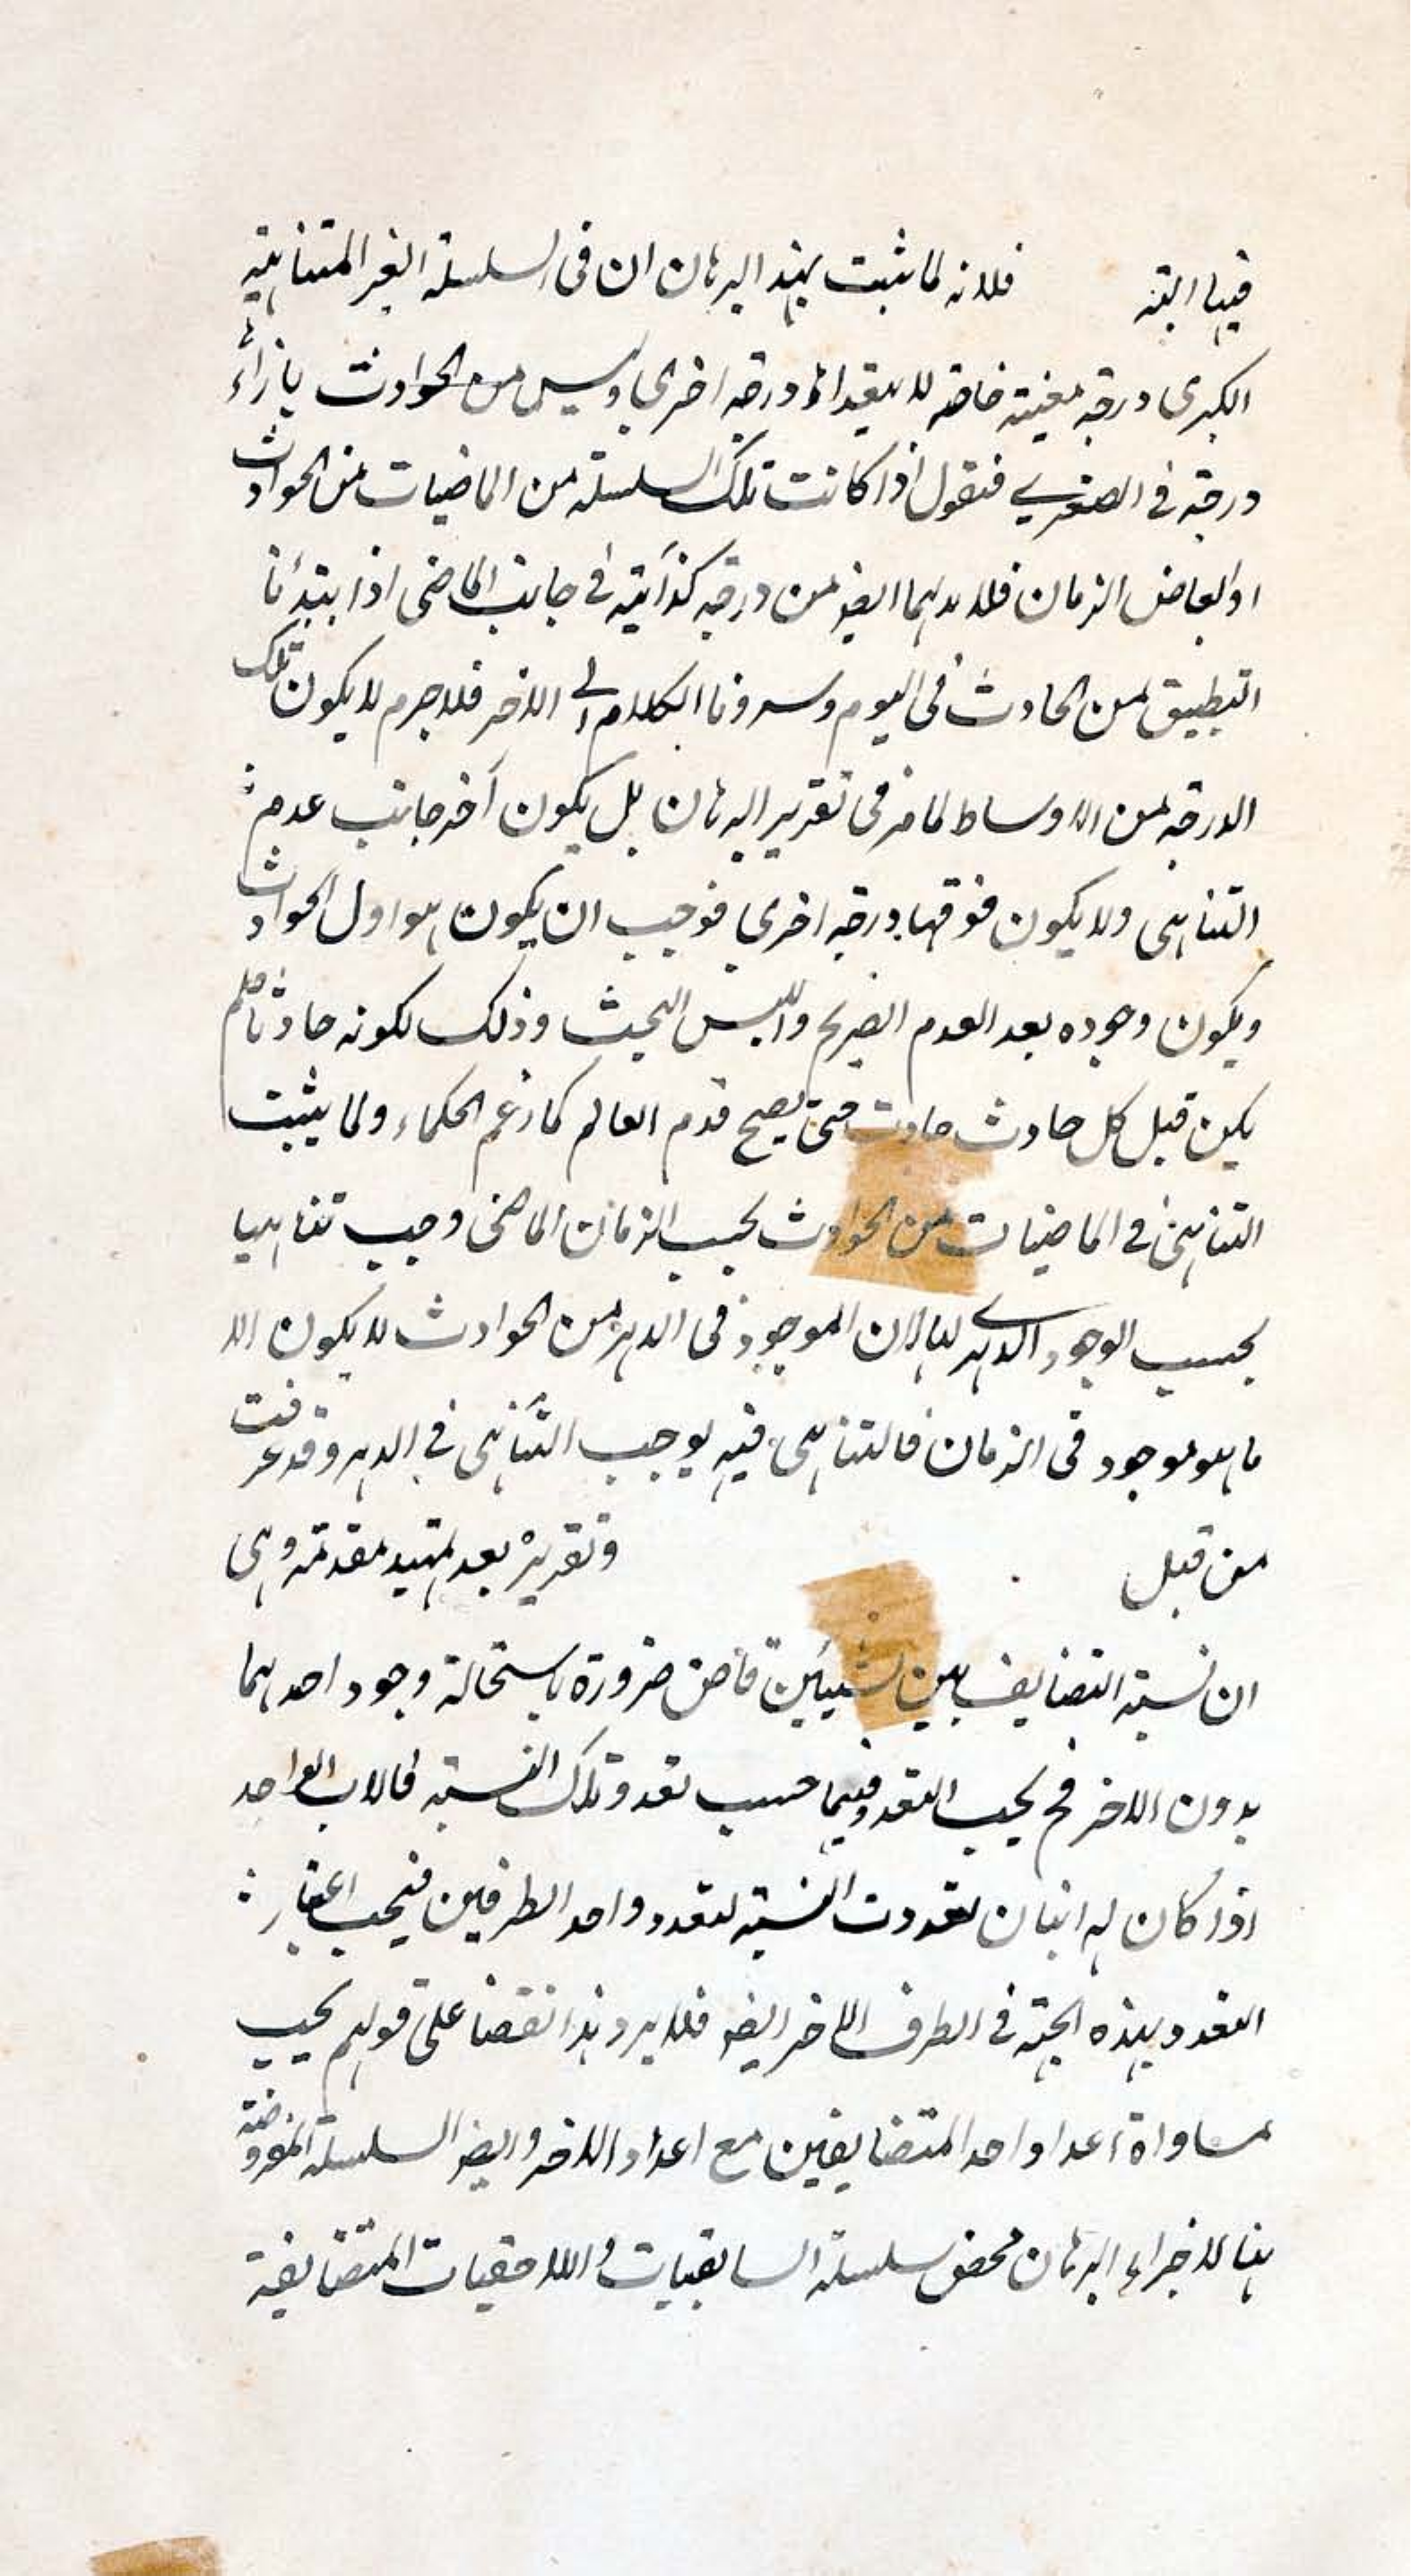 فيها البتة فلانه لما ثبت بهذا البرهان ان فى السلسلة الغير المتناهية
الكبرى درجة معينة خاصة لا بعدها درجة اخرى وليس من الحوادث بازائها
درجة فى الصغرى فنقول اذا كانت تلك السلسلة من الماضيات من الحوادث
او ابعاض الزمان فلا بد لهما ايضا من درجة كذائية فى جانب الماضى اذا ابتدأنا
التطبيق من الحادث فى اليوم وسردنا الكلام الى الاخر فلا جرم لا يكون تلك
الدرجة من الاوساط لما مر فى تقرير البرهان بل يكون آخر جانب عدم
التناهى ولا يكون فوقها درجة اخرى فوجب ان يكون هو اول الحوادث
ويكون وجوده بعد العدم الصريح والليس البحت وذلك لكونه حادثا فلم
يكن قبل كل حادث حادث حتى يصح قدم العالم كما زعم الحكماء ولما يثبت
التناهى فى الماضيات من الحوادث بحسب الزمان الماضى وجب تناهيها
بحسب الوجود الدهرى لها لان الموجود فى الدهر من الحوادث لا يكون الا
ما هو موجود فى الزمان فالتناهى فيه يوجب التناهى فى الدهر وقد عرفت
من قبل وتقريره بعد تمهيد مقدمة وهى
ان نسبة التضايف بين الشيئين قاض ضرورة باستحالة وجود احدهما
بدون الاخر فح يجب التعدد فيهما حسب تعدد تلك النسبة فالاب الواحد
اذا كان له ابنان تعددت النسبة لتعدد واحد الطرفين فيجب اعتبار
التعدد بهذه الجهة فى الطرف الاخر ايضا فلا يرد هذا نقضا على قولهم يجب
مساواة اعداد احد المتضايفين مع اعداد الاخر وايضا السلسلة المفروضة
هنا لاجراء البرهان محض سلسلة السابقيات واللاحقيات المتضايفة